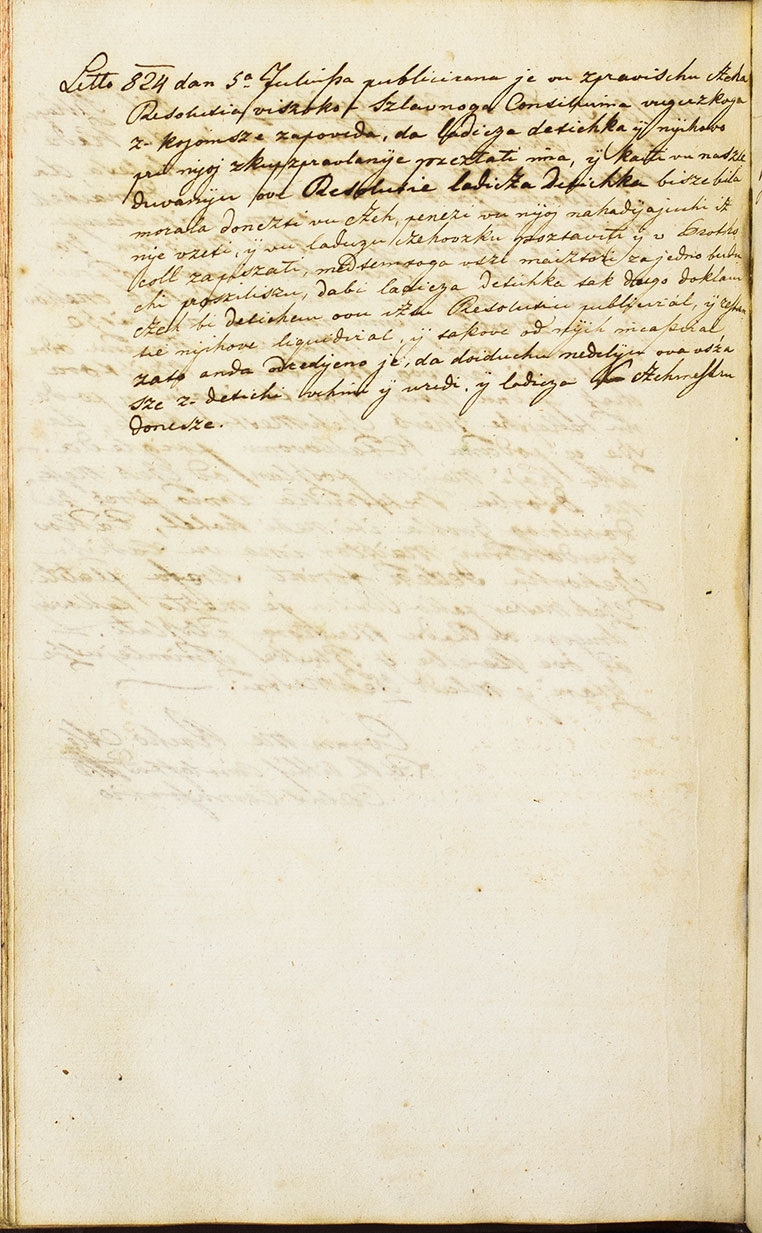 Letto 824 dan 5a Juliusa publicirana je vu zpravischu Czeha
Resolutia viszoko - Szlavnoga Consiliuma vugerzkoga
z- kojomsze zapoveda, da ladicza detichka ÿ nyihovo
pri nyoj zkupzpravlanÿe preztati ima, ÿ kaiti vu nasze
duvanÿu ove Resolutie ladicza Detichka bisze bila
morala doneszti vu Czeh, penezi vu nÿoj nahadÿajuchi iz
nje vzeti, ÿ vu ladiczu Czehovzku poztaviti ÿ v Protho
coll zapiszati, medtemtoga vszi maisztori zajedno budu
chi proszilisзu, dabi ladicza detichka tak dugo doklam
Czeh bi detichem ovu iztu Resolutiu publiciral, ÿ restan
tie nÿihove liquidiral, ÿ takove od nÿih incassiral
zato anda odredjeno je, da doiduchu nedelÿu ova vsza
sze z- detichi vchini ÿ uredi, ÿ ladicza k Czehmestru
donesze.